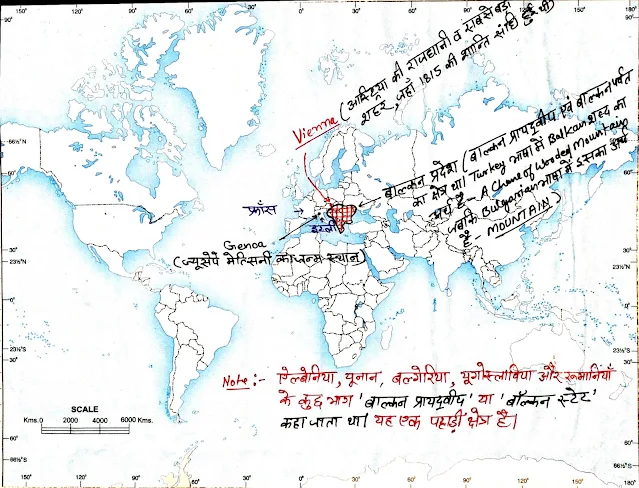 150° 120° 90° 60° 30° 0° 30° 60° 90° 120° 150° 180°
Vienna (आस्ट्रिया की राजधानी व सबसे बड़ा
शहर, जहाँ 1815 की शान्ति संधि हुई थी)
66½°N
60°
30°
23½°N
0°
23½°S
30°
60°
66½°N
60°
30°
23½°N
0°
23½°S
30°
60°
बाल्कन प्रदेश (बाल्कन प्रायद्वीप एवं बाल्कन पर्वत
का क्षेत्र था। Turkey भाषा में Balkan शब्द का
अर्थ है - A Chane of Wooded Mountain
जबकि Bulgarian भाषा में इसका अर्थ
है MOUNTAIN)
फ्राँस
इटली
Genoa
(ज्यूसेपे मेत्सिनी का जन्म स्थान)
Note :- ऐल्बेनिया, यूनान, बल्गेरिया, यूगोस्लाविया और रूमानियाँ
के कुछ भाग 'बाल्कन प्रायद्वीप' या 'बॉल्कन स्टेट'
कहा जाता था। यह एक पहाड़ी क्षेत्र है।
SCALE
Kms.0 2000 4000 6000 Kms.
150° 120° 90° 60° 30° 0° 30° 60° 90° 120° 150° 180°